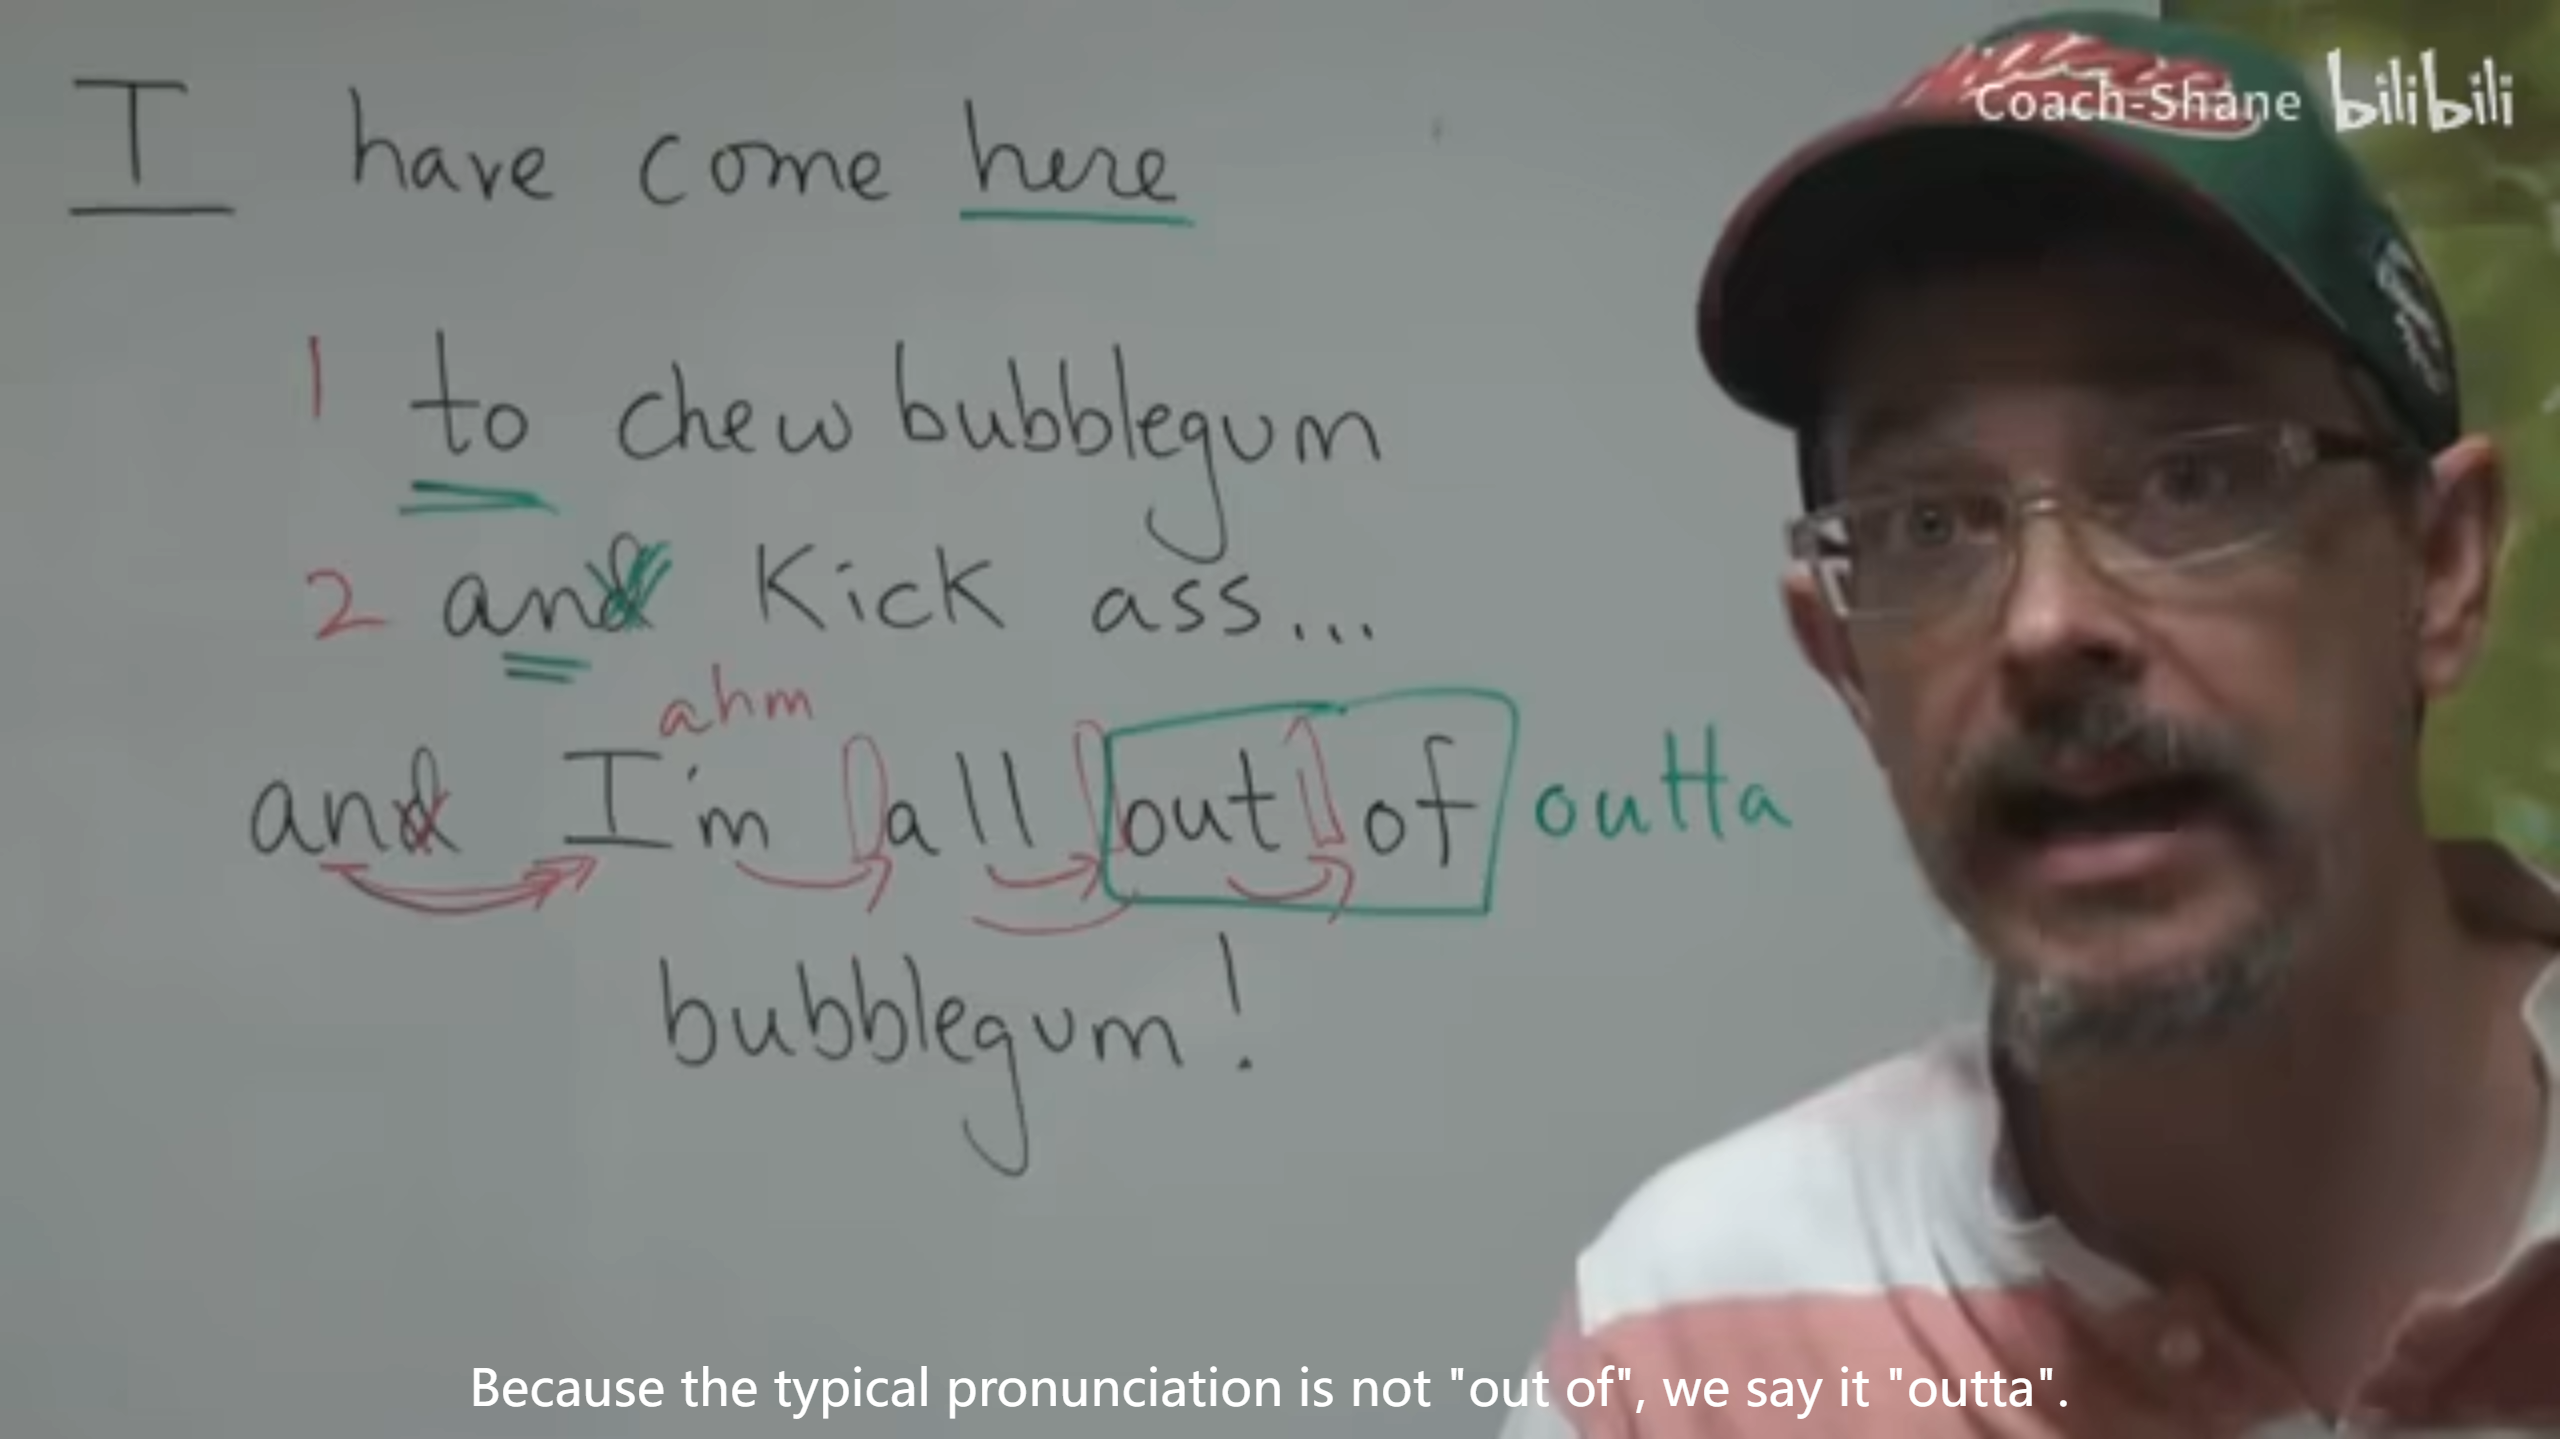 Coach-Shane bilibili
I have come here
1 to chew bubblegum
2 and Kick ass...
ahm
and I'm all out of outta
bubblegum!
Because the typical pronunciation is not "out of", we say it "outta".